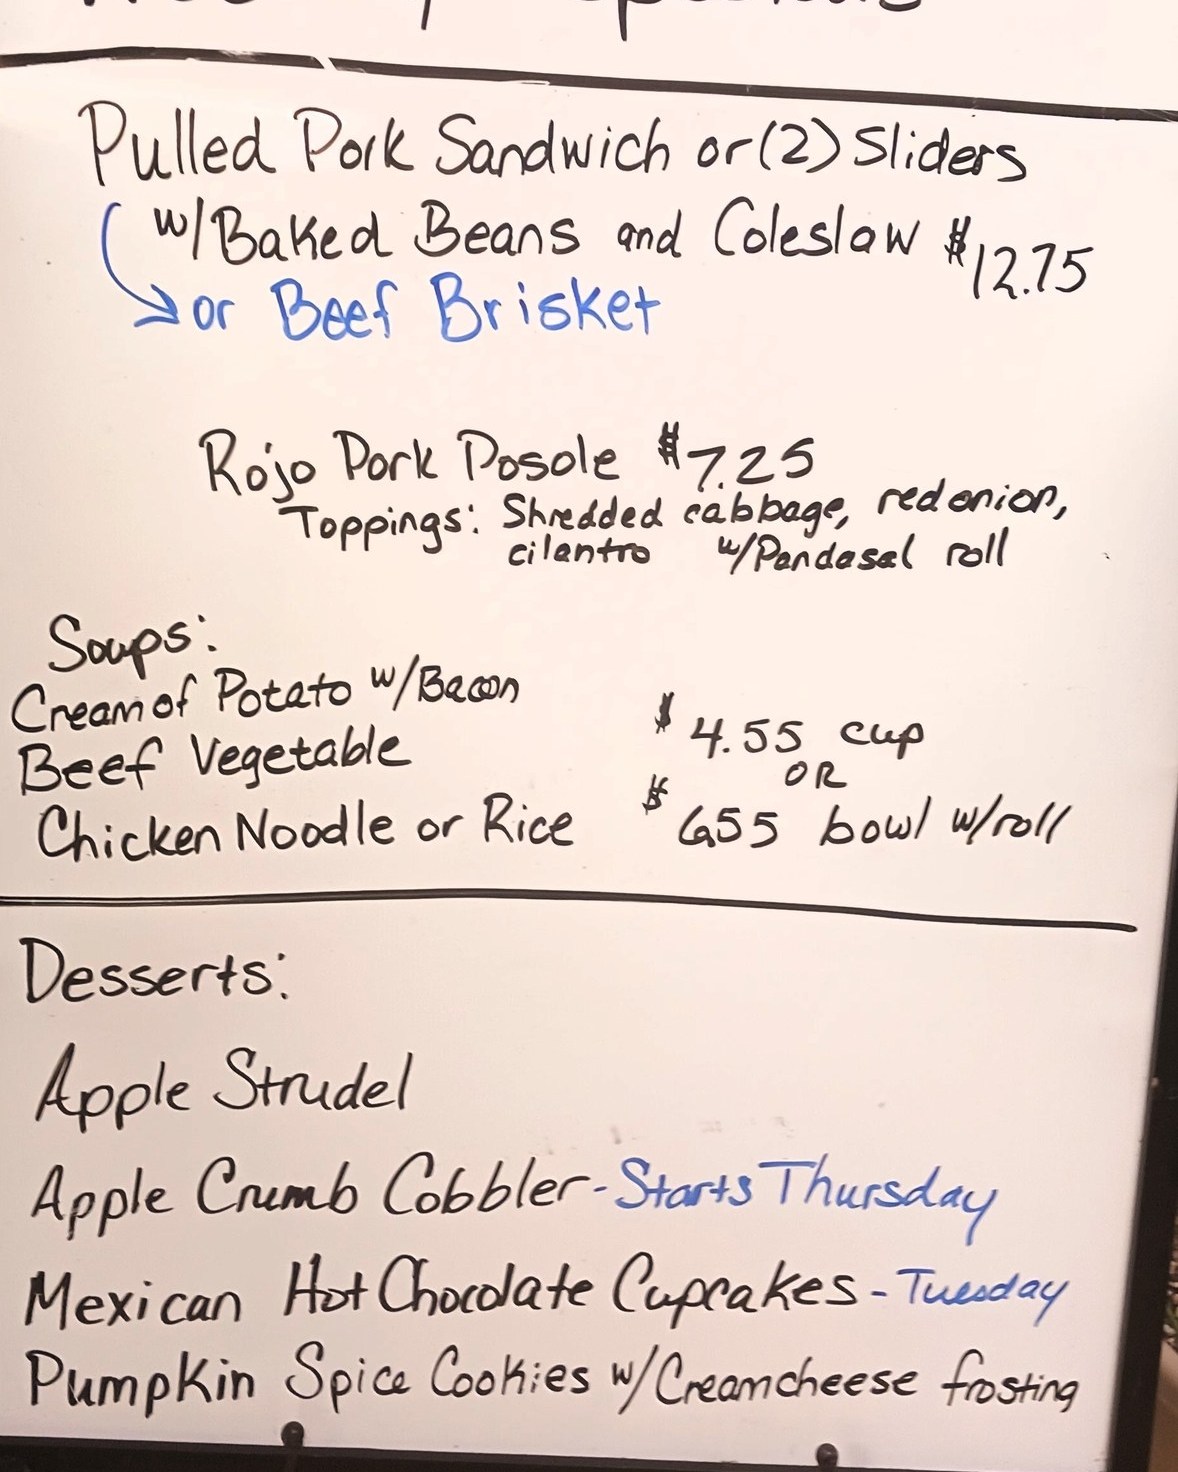 Pulled Pork Sandwich or (2) Sliders
w/Baked Beans and Coleslaw $12.75
or Beef Brisket
Rojo Pork Posole $7.25
Toppings: Shredded cabbage, red onion,
cilantro w/Pandasal roll
Soups:
Cream of Potato w/Bacon
Beef Vegetable
$4.55 cup
OR
Chicken Noodle or Rice
$6.55 bowl w/roll
Desserts:
Apple Strudel
Apple Crumb Cobbler - Starts Thursday
Mexican Hot Chocolate Cupcakes - Tuesday
Pumpkin Spice Cookies w/Creamcheese frosting